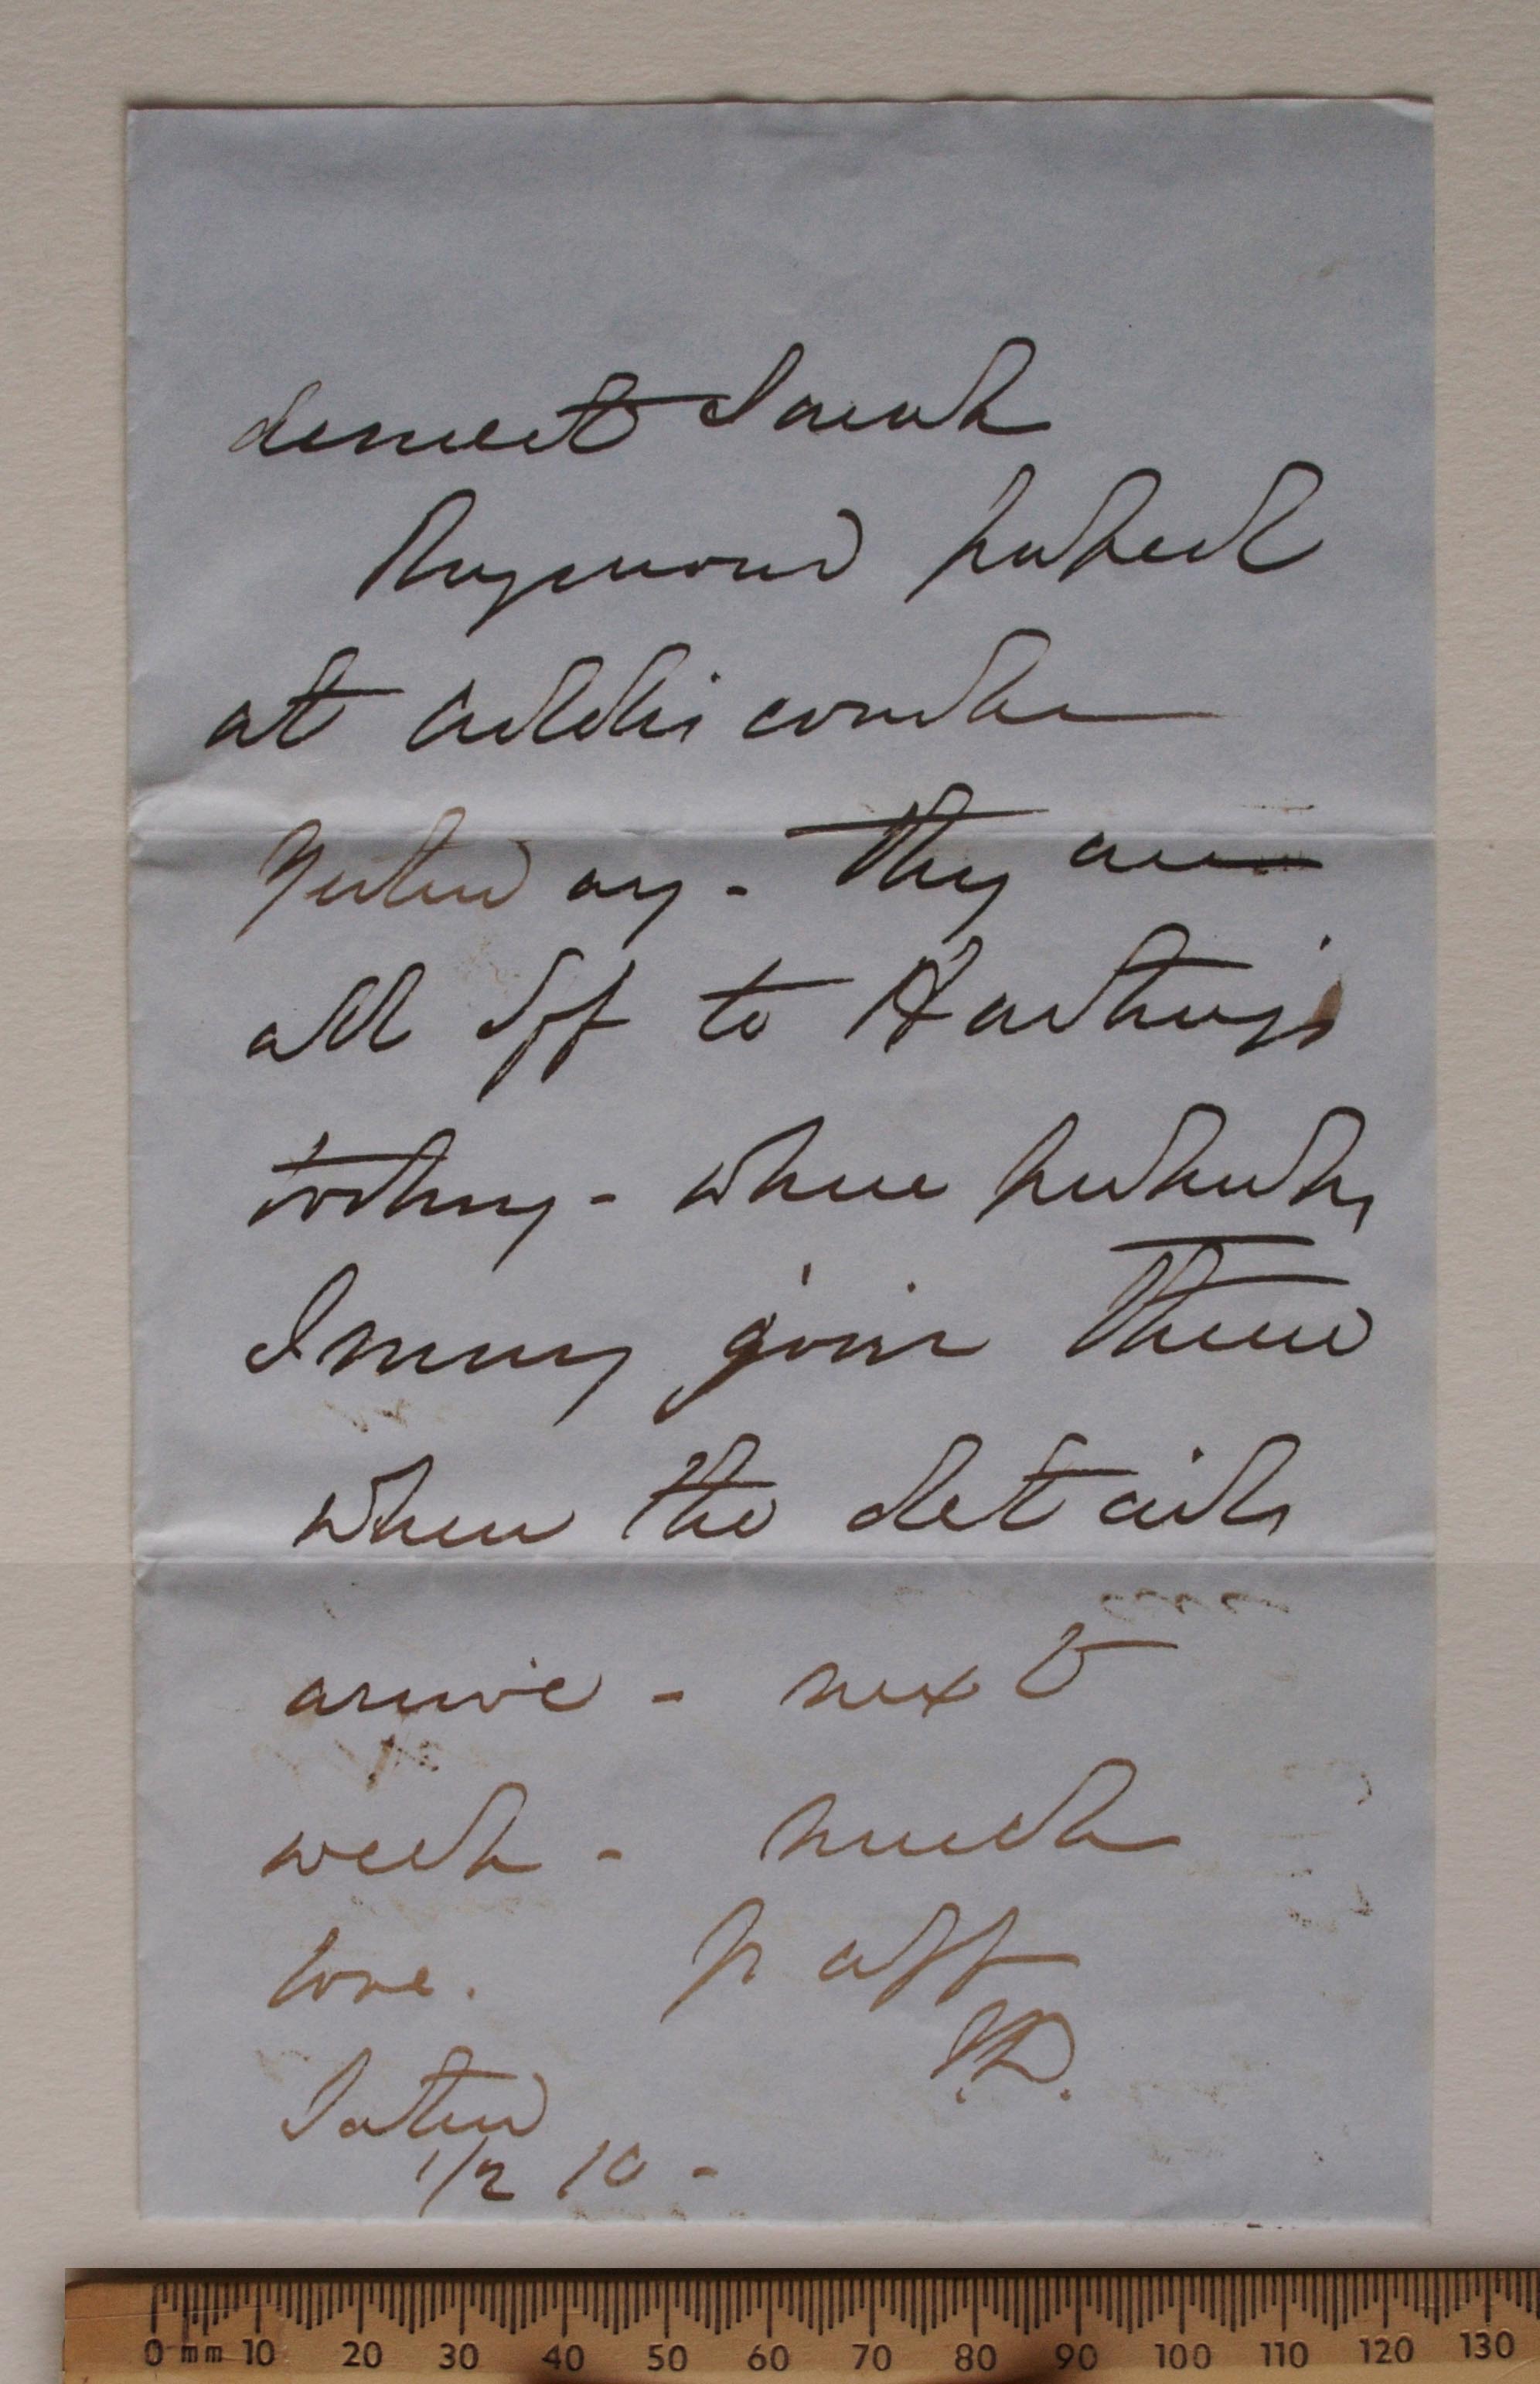 dearest Sarah
Raymond passed
at Addiscombe
Yesterday - They are
all off to Hastings
today - where probably
I may join them
when the details
arrive - next
week - much
love. yr aff
Satur
1/2 10 -
0 mm 10 20 30 40 50 60 70 80 90 100 110 120 130